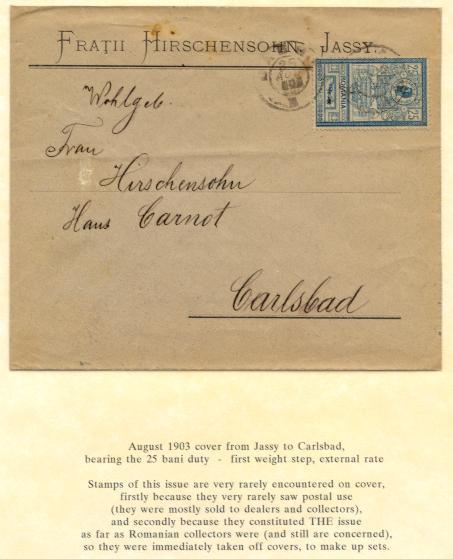 FRAȚII HIRSCHENSOHN, JASSY.
25
25
ROMANIA
Wohlgeb.
Frau
Hirschensohn
Haus Carnot
Carlsbad
August 1903 cover from Jassy to Carlsbad,
bearing the 25 bani duty - first weight step, external rate
Stamps of this issue are very rarely encountered on cover,
firstly because they very rarely saw postal use
(they were mostly sold to dealers and collectors),
and secondly because they constituted THE issue
as far as Romanian collectors were (and still are concerned),
so they were immediately taken off covers, to make up sets.